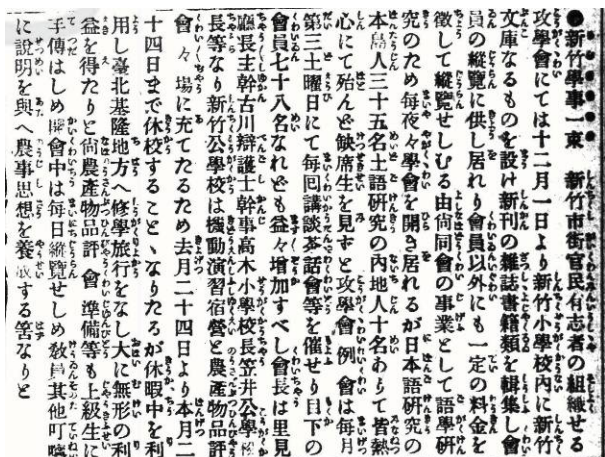 ●新竹學事一束　新竹市街官民有志者の組織せる
攻學會にては十二月一日より新竹小學校內に新竹
文庫なるものを設け新刊の雜誌書籍類を輯集し會
員の縱覽に供し居れり會員以外にも一定の料金を
徵して縱覽せしむる由尙同會の事業として語學研
究のため每夜々學會を開き居れるが日本語研究の
本島人三十五名土語研究の內地人十名ありて皆熱
心にて殆んど缺席生を見ずと攻學會例會は每月
第三土曜日にて每回講談茶話會等を催せり目下の
會員七十八名なれども益々增加すべし會長は里見
廳長主幹古川辯護士幹事高木小學校長笠井公學校
長等なり新竹公學校は機動演習宿營と農產物品評
會々場に充てたるため去月二十四日より本月二
十四日まで休校することゝなりたるが休暇中を利
用し臺北基隆地方へ修學旅行をなし大に無形の利
益を得たりと尙農產物品評會準備等も上級生に
手傳はしめ開會中は每日縱覽せしめ敎員其他叮嚀
に說明を與へ農事思想を養成する筈なりと